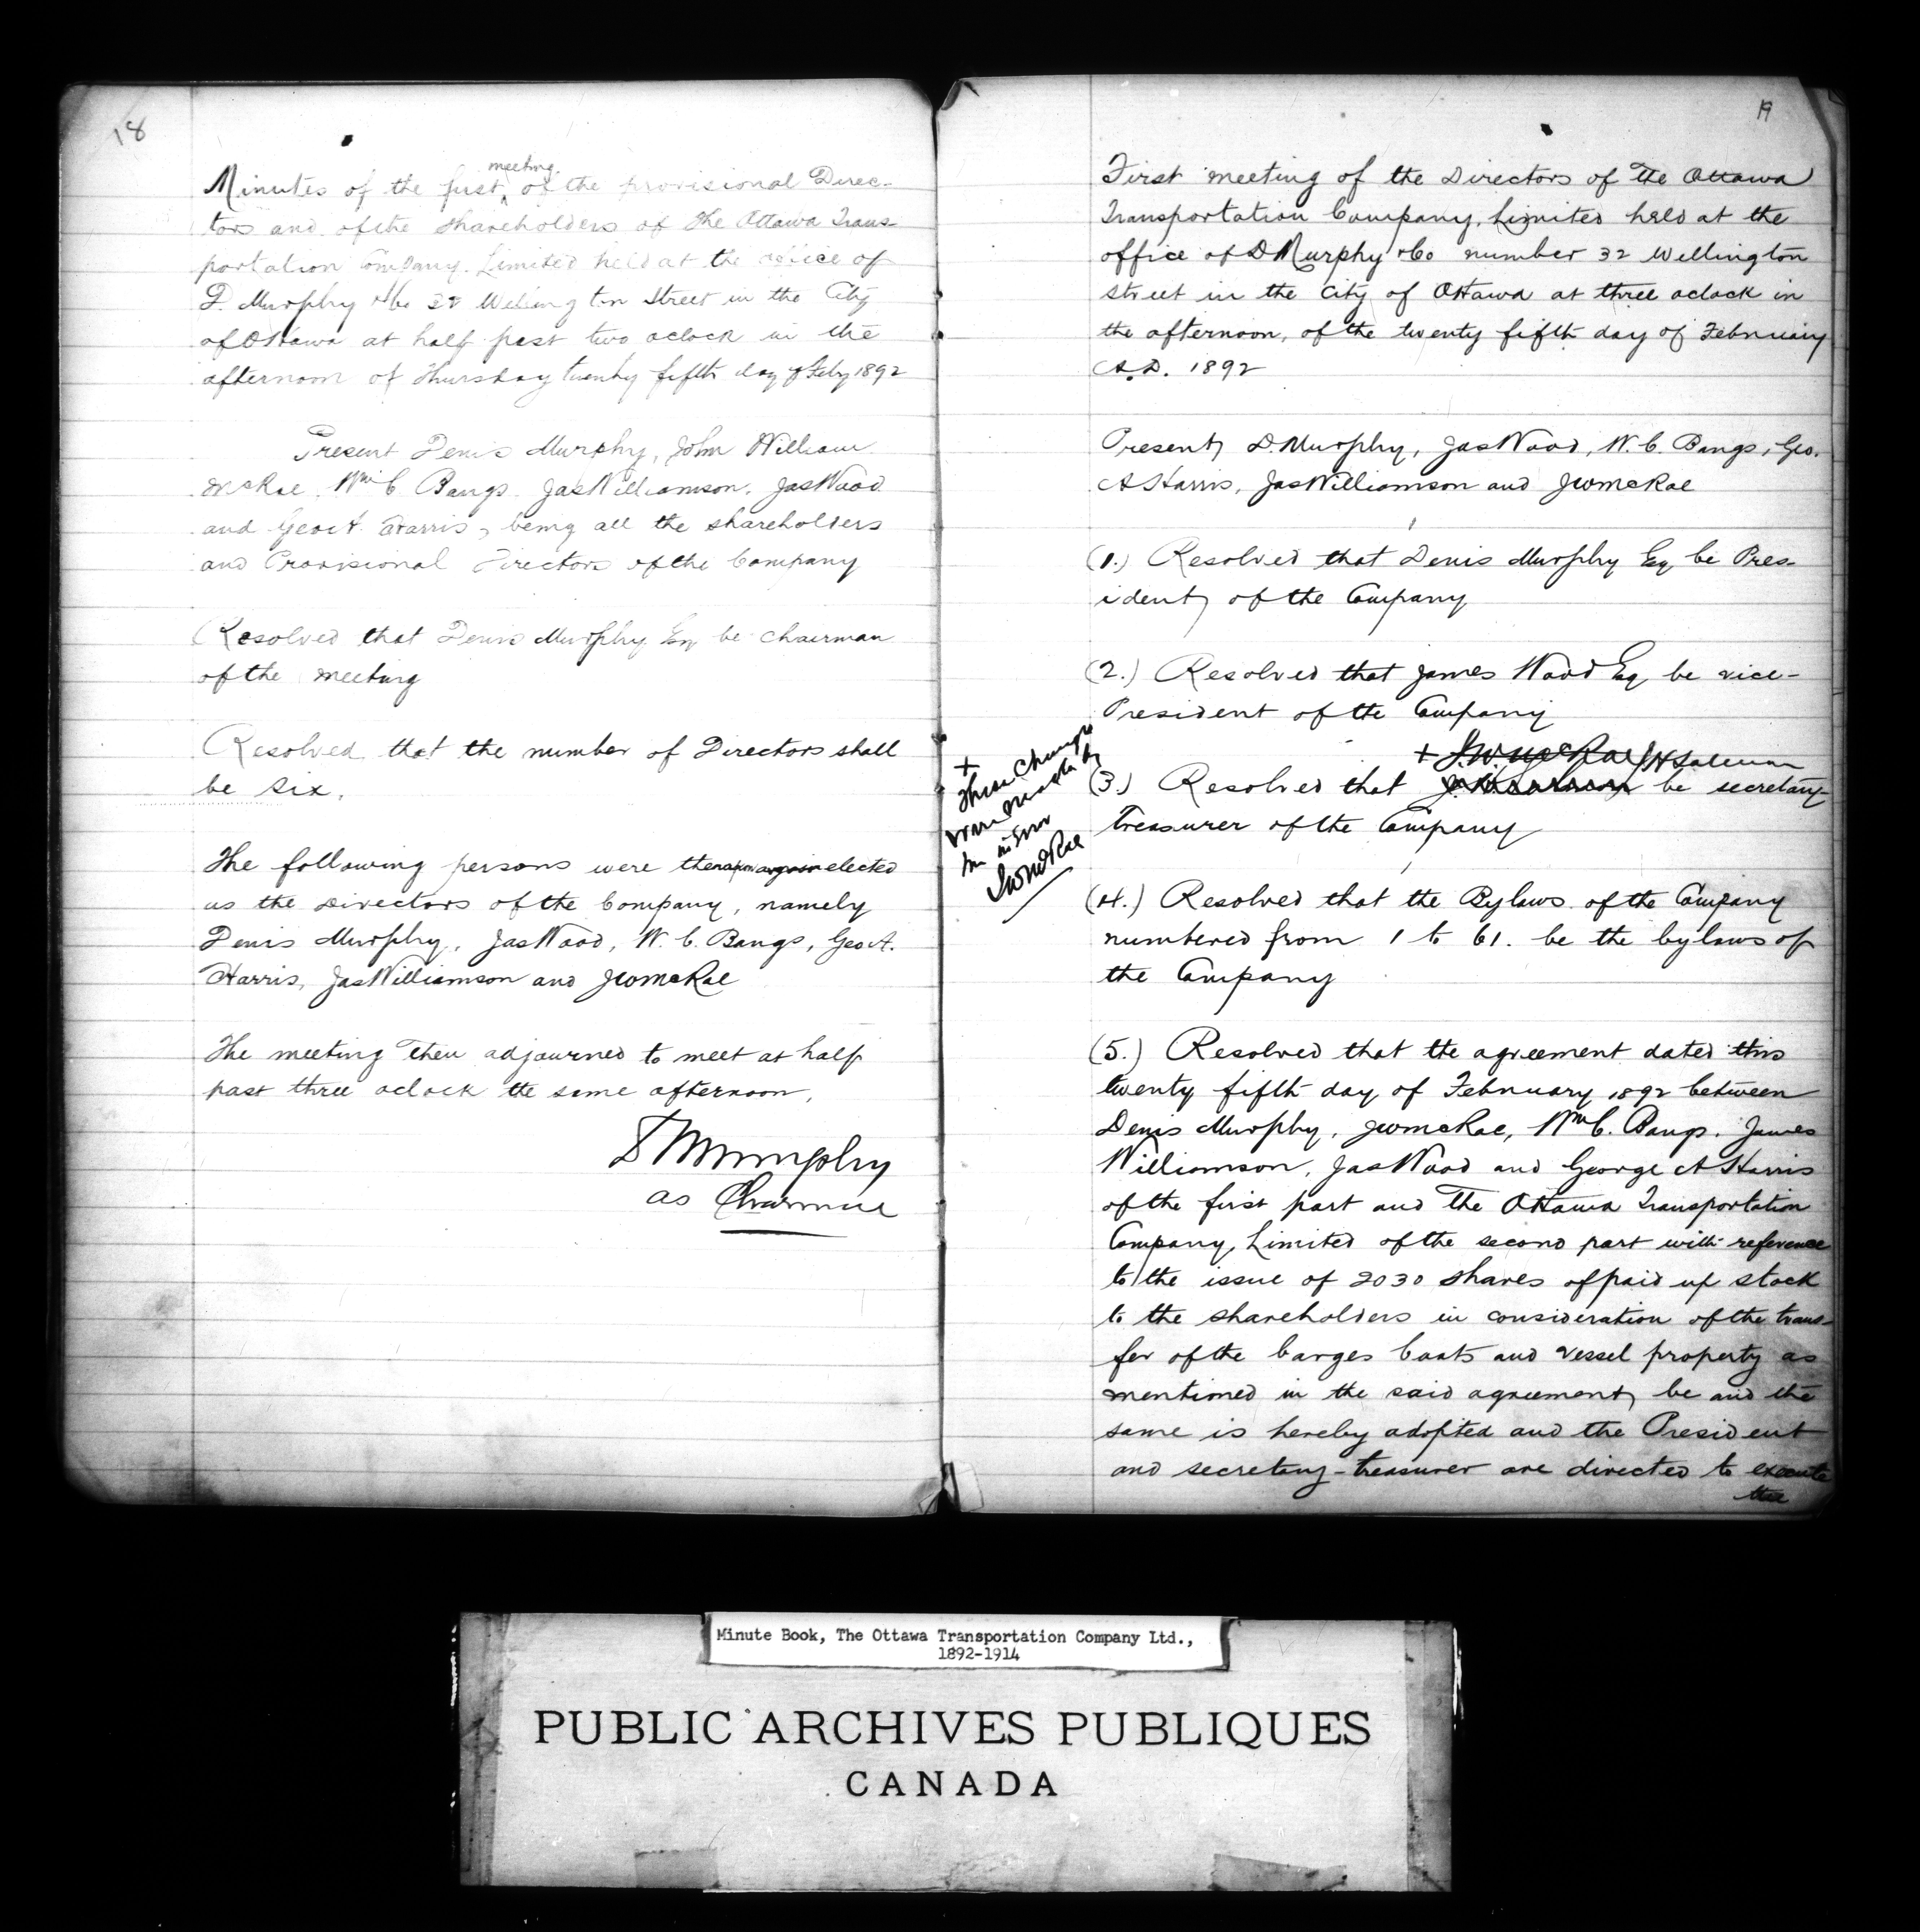 18
Minutes of the first meeting of the provisional Direc-
tors and of the shareholders of The Ottawa Trans-
portation Company. Limited held at the office of
D. Murphy & Co 32 Wellington Street in the City
of Ottawa at half past two oclock in the
afternoon of Thursday twenty fifth day of Feby 1892
Present Denis Murphy, John William
McRae, Wm C Bangs. Jas Williamson. Jas Wood
and Geo A. Harris, being all the shareholders
and Provisional Directors of the Company
Resolved that Denis Murphy Esq be chairman
of the meeting
Resolved that the number of Directors shall
be six.
The following persons were elected
as the Directors of the Company, namely
Denis Murphy, Jas Wood, W. C. Bangs, Geo A.
Harris, Jas Williamson and JW McRae
The meeting then adjourned to meet at half
past three oclock the same afternoon.
D Murphy
as Chairman
19
First meeting of the Directors of The Ottawa
Transportation Company, Limited held at the
office of D Murphy & Co number 32 Wellington
street in the City of Ottawa at three oclock in
the afternoon, of the twenty fifth day of February
A.D. 1892
Present, D. Murphy, Jas Wood, W. C. Bangs, Geo.
A Harris, Jas Williamson and JW McRae
(1.) Resolved that Denis Murphy Esq be Pres-
ident, of the Company
(2.) Resolved that James Wood Esq be vice-
President of the Company
+ J.W. McRae
(3.) Resolved that be secretary-
treasurer of the Company
+
These changes
were made by
me in error
JW McRae
(4.) Resolved that the Bylaws of the Company
numbered from 1 to 61. be the bylaws of
the Company
(5.) Resolved that the agreement dated this
twenty fifth day of February 1892 between
Denis Murphy, JW McRae, Wm C. Bangs. James
Williamson, Jas Wood and George A Harris
of the first part and The Ottawa Transportation
Company, Limited of the second part with reference
to the issue of 2030 shares of paid up stock
to the shareholders in consideration of the trans-
fer of the barges boats and vessel property as
mentioned in the said agreement, be and the
same is hereby adopted and the President
and secretary-treasurer are directed to execute
the
Minute Book, The Ottawa Transportation Company Ltd.,
1892-1914
PUBLIC ARCHIVES PUBLIQUES
CANADA